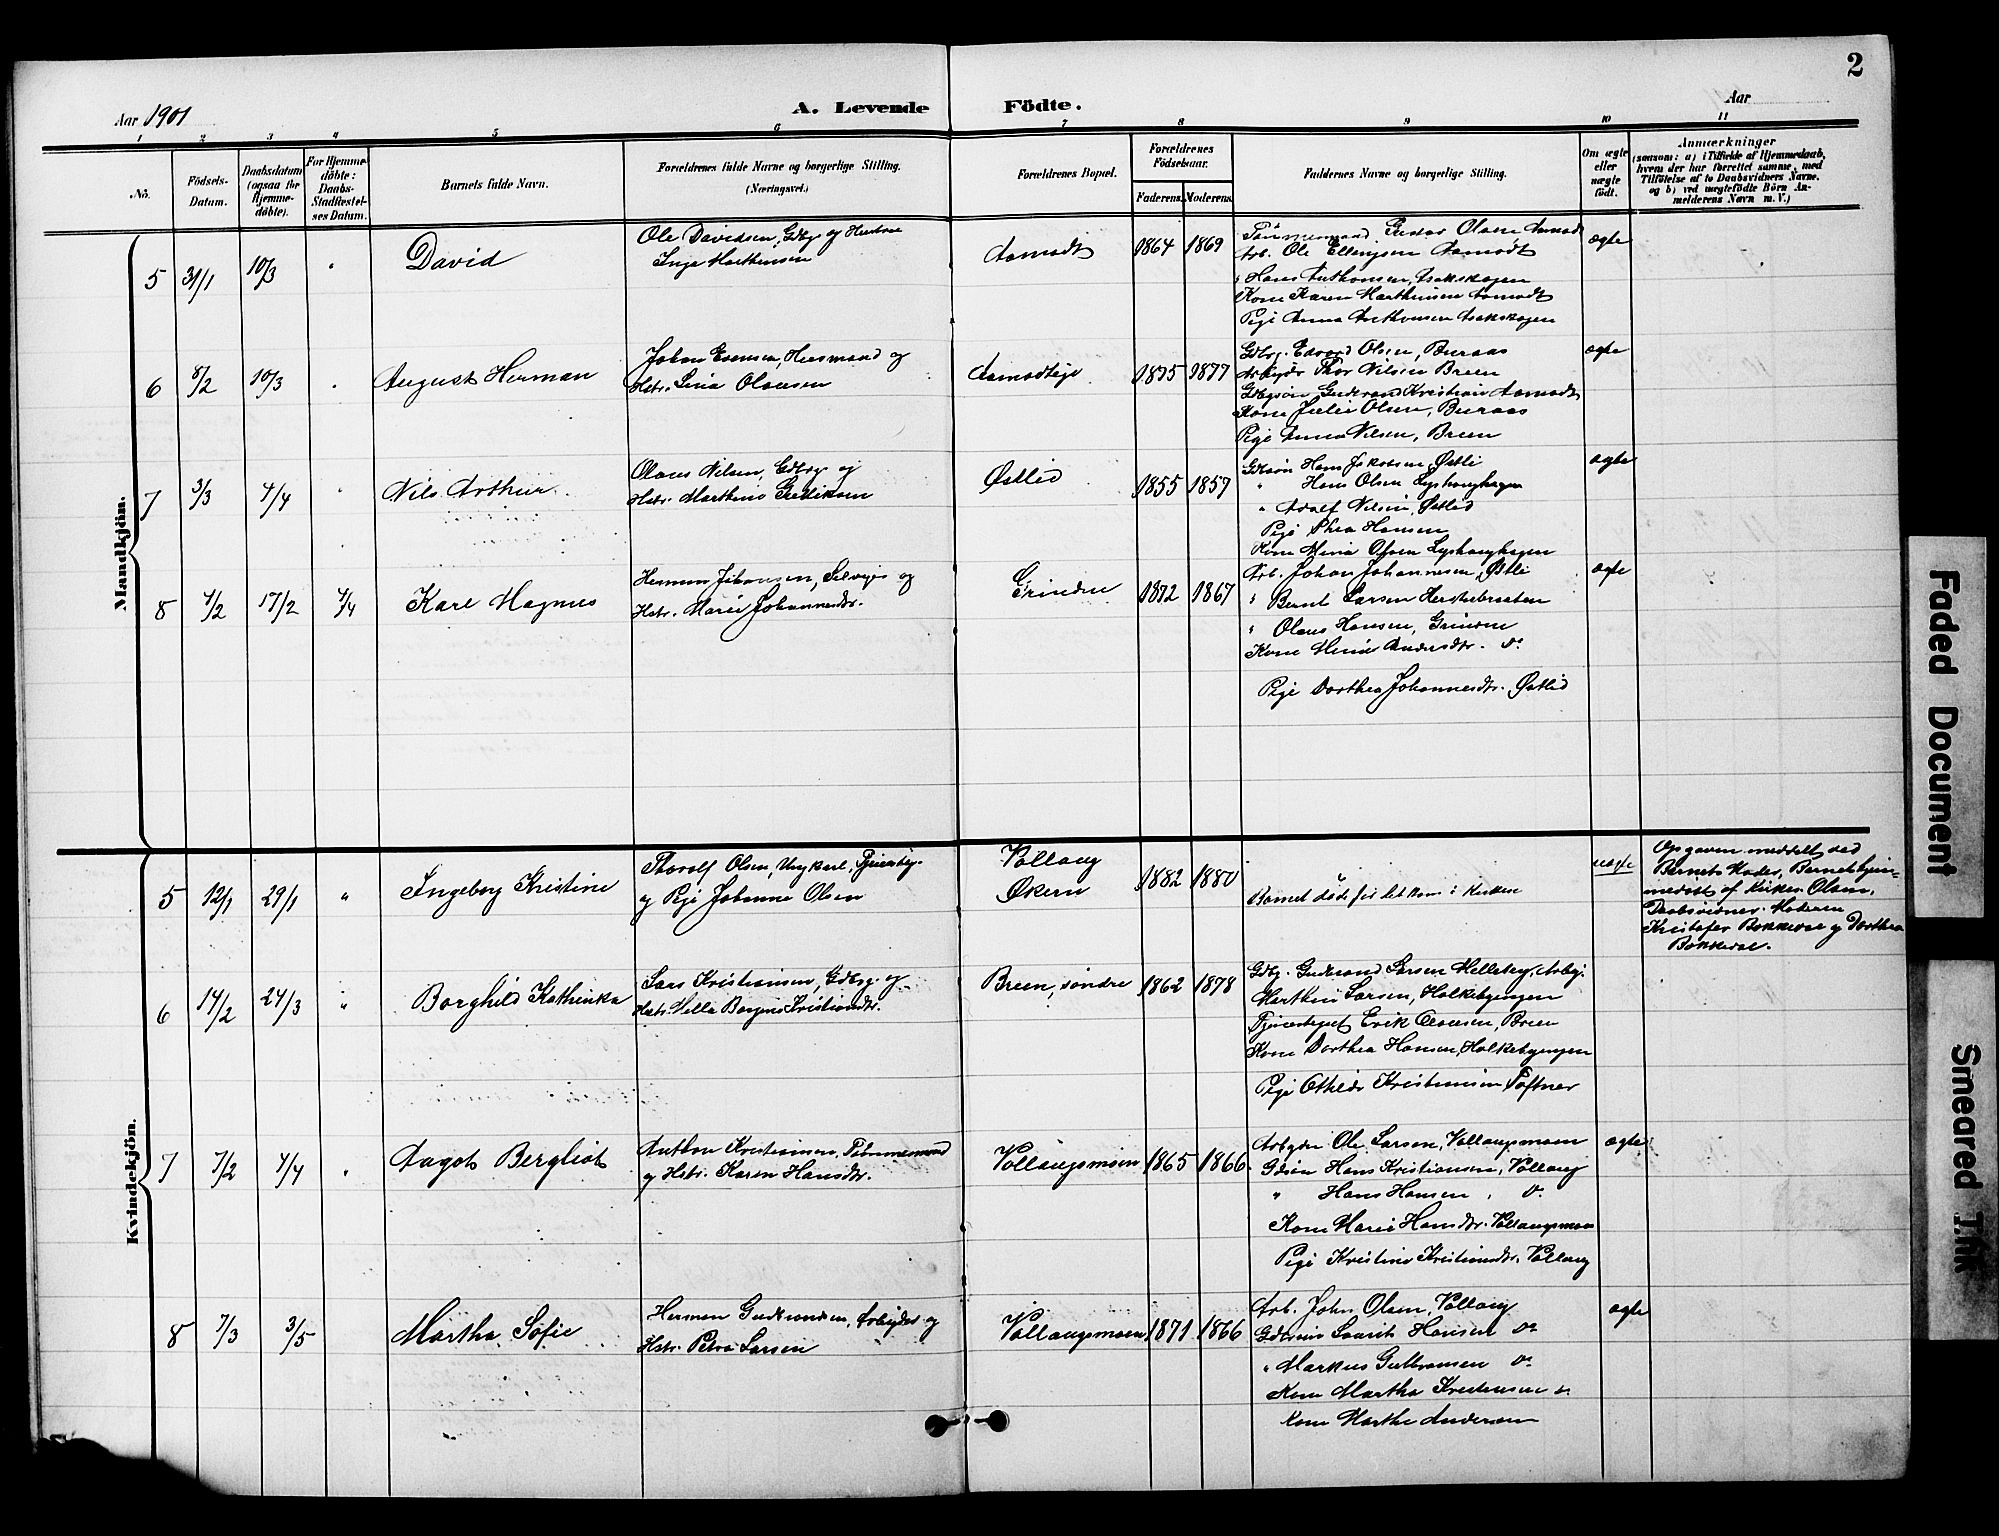 2
Aar 1901
A. Levende Födte.
Aar
1 2 3 4 5 6 7 8 9 10 11
No.
Födsels-Datum.
Daabsdatum (ogsaa for Hjemmedöbte).
For Hjemmedöbte: Daabs-Stadfæstelses Datum.
Barnets fulde Navn.
Forældrenes fulde Navne og borgerlige Stilling.
(Næringsvei.)
Forældrenes Bopæl.
Forældrenes Födselsaar.
Faderens. Moderens.
Faddernes Navne og borgerlige Stilling.
Om ægte eller uægte födt.
Anmærkninger
(saasom: a) i Tilfælde af Hjemmedaab, hvem der har forrettet samme, med Tilföielse af to Daabsvidners Navne, og b) ved uægtefödte Börn Anmelderens Navn m. V.)
Mandkjön.
5 31/1 10/3 " David
Ole Davidsen, Gdbr. og Hustru
Inga Marthinsen
Aamodt 1864 1869
Tömmermand Gustav Olsen Aamodt
Arb. Ole Ellingsen Aamodt
" Hans Anthonsen, Asakskogen
Kone Karen Marthinsen Aamodt
Pige Anna Anthonsen Asakskogen
ægte
6 8/2 10/3 " August Herman
Johan Evensen, Huusmand og
Hstr. Lina Olausen
Aamodteje 1875 1877
Gdbr. Edvard Olsen, Buraas
Arbejdr Thor Nilsen Breen
Gdbrsön Gudrand Kristian Aamodt
Kone Julie Olsen, Buraas
Pige Anna Nilsen, Breen
ægte
7 3/3 4/4 " Nils Arthur
Olaus Nilsen, Gdbrg. og
Hstr. Marthine Fredriksen
Østlid 1855 1857
Gdbsön Hans Jakobsen Østli
" Hans Olsen Lyshaughagen
" Adolf Nilsen, Østlid
Pige Thea Hansen
Kone Mina Olsen Lyshaughagen
ægte
8 4/2 17/2 4/4 Karl Magnus
Herman Johansen, Selvejer og
Hstr. Marie Johannesdtr.
Grinden 1872 1867
Arb. Johan Johannesen, Østli
" Bernt Larsen Herstebraaten
" Olaus Hansen, Grinden
Kone Mina Andersdtr. Do
Pige Dorthea Johannesdtr. Østlid
ægte
Kvindekjön.
5 12/1 29/1 " Ingeborg Kristine
Thorolf Olsen, Ungkarl,
og Pige Johanne Olsen
Vollaug
Økern
1882 1880
Barnet döde för det kom i Kirken
uægte
Opgaven meddelt ved
Barnets Moder, Barnet hjemmedöbt af Olsen,
Daabsvidner: Moderen
Kristofer Bakkerae og Dorthea
Bakkerae.
6 14/2 24/3 " Borghild Kathinka
Lars Kristiansen, Gdbrg. og
Hstr. Milla Borgine Kristiansdtr.
Breen, söndre 1862 1878
Gdbr. Gudrand Larsen Melleby, Arbej.
Marthin Larsen, Holkebyengen
Erik Olausen, Breen
Kone Dorthea Hansen, Holkebyengen
Pige Othilde Kristiansen Toftner
7 7/2 4/4 " Aagot Bergliot
Anthon Kristiansen, Tömmermand
og Hstr. Karen Hansdtr.
Vollaugsmoen 1865 1866
Arbejder Ole Larsen, Vollaugsmoen
Gdsön Hans Kristiansen, Vollaug
" Hans Hansen, Do
Kone Marie Hansdtr. Vollaugsmoen
Pige Kristine Kristiansdtr. Vollaug
ægte
8 7/3 3/5 Martha Sofie
Herman Gudbrandsen, Arbejder og
Hstr. Petra Larsen
Vollaugsmoen 1871 1866
Arb. John Olsen, Vollaug
Gdbrsön Laurits Hansen Do
" Markus Gulbransen Do
Kone Martha Kristensen Do
Kone Marthe Andersen
ægte
Faded Document
Smeared Ink